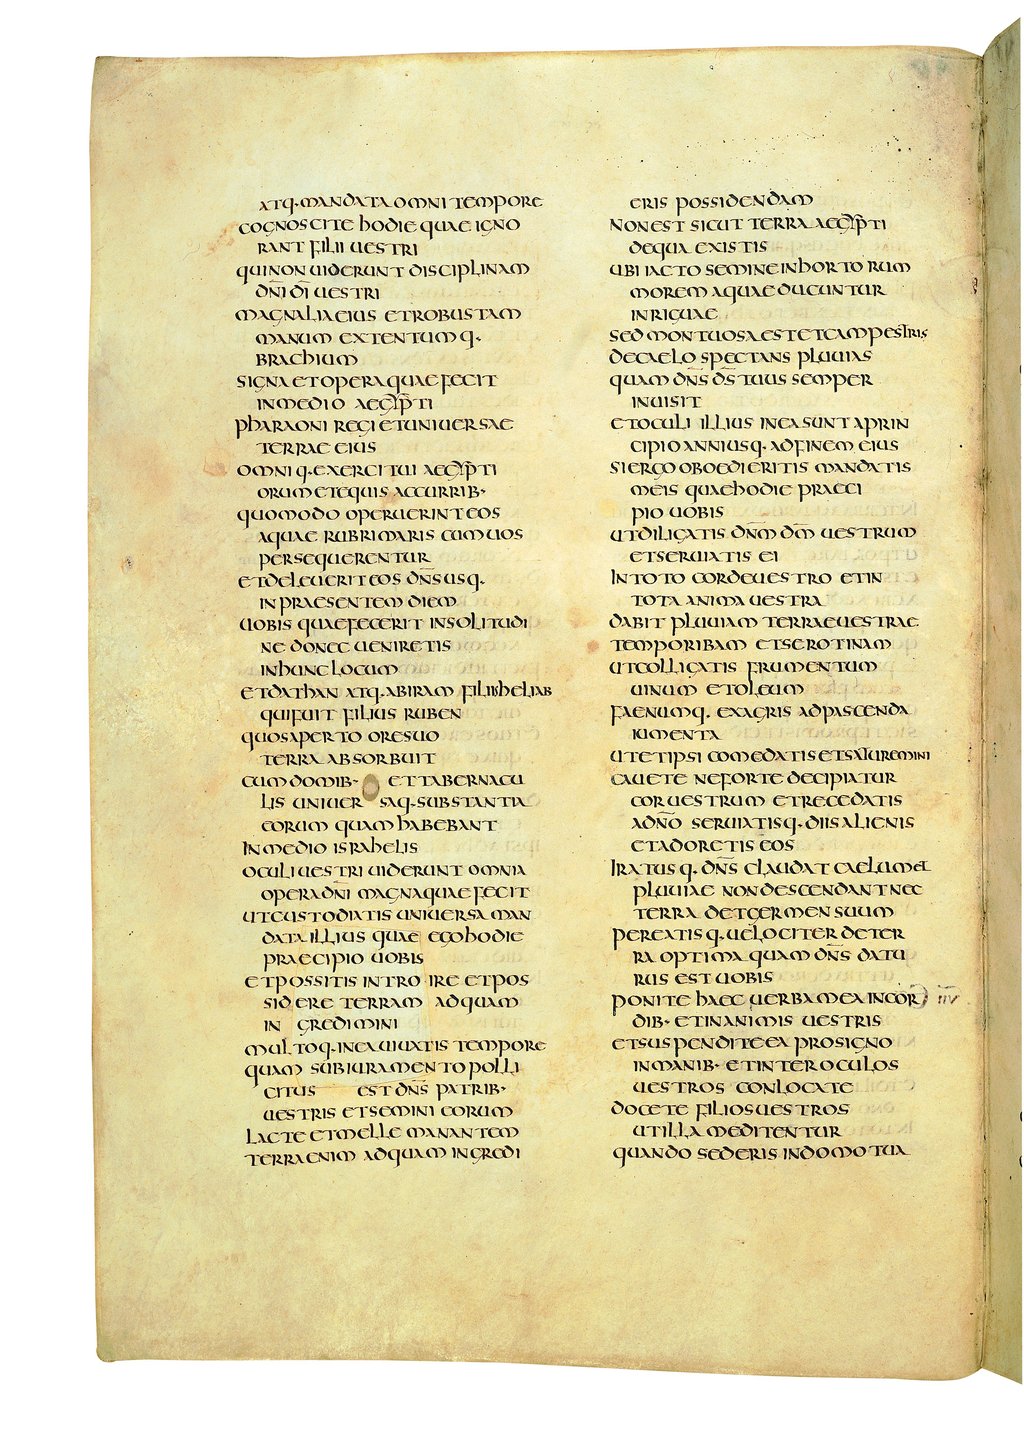 ATQ·MANDATA OMNI TEMPORE
COGNOSCITE HODIE QUAE IGNO
RANT FILII UESTRI
QUI NON UIDERUNT DISCIPLINAM
DN̄I DĪ UESTRI
MAGNALIA EIUS ET ROBUSTAM
MANUM EXTENTUMQ·
BRACHIUM
SIGNA ET OPERA QUAE FECIT
IN MEDIO AEGYPTI
PHARAONI REGI ET UNIUERSAE
TERRAE EIUS
OMNIQ·EXERCITUI AEGYPTI
ORUM ET EQUIS AC CURRIB·
QUOMODO OPERUERINT EOS
AQUAE RUBRI MARIS CUM UOS
PERSEQUERENTUR
ET DELEUERIT EOS DN̄S USQ·
IN PRAESENTEM DIEM
UOBIS QUAE FECERIT IN SOLITUDI
NE DONEC UENIRETIS
IN HUNC LOCUM
ET DATHAN ATQ·ABIRAM FILIIS HELIAB
QUI FUIT FILIUS RUBEN
QUOS APERTO ORE SUO
TERRA ABSORBUIT
CUM DOMIB· ET TABERNACU
LIS UNIUERSAQ·SUBSTANTIA
EORUM QUAM HABEBANT
IN MEDIO ISRAHELIS
OCULI UESTRI UIDERUNT OMNIA
OPERA DN̄I MAGNA QUAE FECIT
UT CUSTODIATIS UNIUERSA MAN
DATA ILLIUS QUAE EGO HODIE
PRAECIPIO UOBIS
ET POSSITIS INTROIRE ET POS
SIDERE TERRAM AD QUAM
INGREDIMINI
MULTOQ·IN EA UIUATIS TEMPORE
QUAM SUB IURAMENTO POLLI
CITUS EST DN̄S PATRIB·
UESTRIS ET SEMINI EORUM
LACTE ET MELLE MANANTEM
TERRA ENIM AD QUAM INGREDI
ERIS POSSIDENDAM
NON EST SICUT TERRA AEGYPTI
DE QUA EXISTIS
UBI IACTO SEMINE IN HORTORUM
MOREM AQUAE DUCUNTUR
INRIGUAE
SED MONTUOSA EST ET CAMPESTRIS
DE CAELO SPECTANS PLUUIAS
QUAM DN̄S DS̄ TUUS SEMPER
INUISIT
ET OCULI ILLIUS IN EA SUNT A PRIN
CIPIO ANNI USQ·AD FINEM EIUS
SI ERGO OBOEDIERITIS MANDATIS
MEIS QUAE HODIE PRAECI
PIO UOBIS
UT DILIGATIS DN̄M DM̄ UESTRUM
ET SERUIATIS EI
IN TOTO CORDE UESTRO ET IN
TOTA ANIMA UESTRA
DABIT PLUUIAM TERRAE UESTRAE
TEMPORIBAM ET SEROTINAM
UT COLLIGATIS FRUMENTUM
UINUM ET OLEUM
FAENUMQ· EX AGRIS AD PASCENDA
IUMENTA
UT ET IPSI COMEDATIS ET SATUREMINI
CAUETE NE FORTE DECIPIATUR
COR UESTRUM ET RECEDATIS
A DN̄O SERUIATISQ·DIIS ALIENIS
ET ADORETIS EOS
IRATUSQ· DN̄S CLAUDAT CAELUM ET
PLUUIAE NON DESCENDANT NEC
TERRA DET GERMEN SUUM
PEREATISQ·UELOCITER DE TER
RA OPTIMA QUAM DN̄S DATU
RUS EST UOBIS
PONITE HAEC UERBA MEA IN COR
DIB· ET IN ANIMIS UESTRIS
ET SUSPENDITE EA PRO SIGNO
IN MANIB· ET INTER OCULOS
UESTROS CONLOCATE
DOCETE FILIOS UESTROS
UT ILLA MEDITENTUR
QUANDO SEDERIS IN DOMO TUA